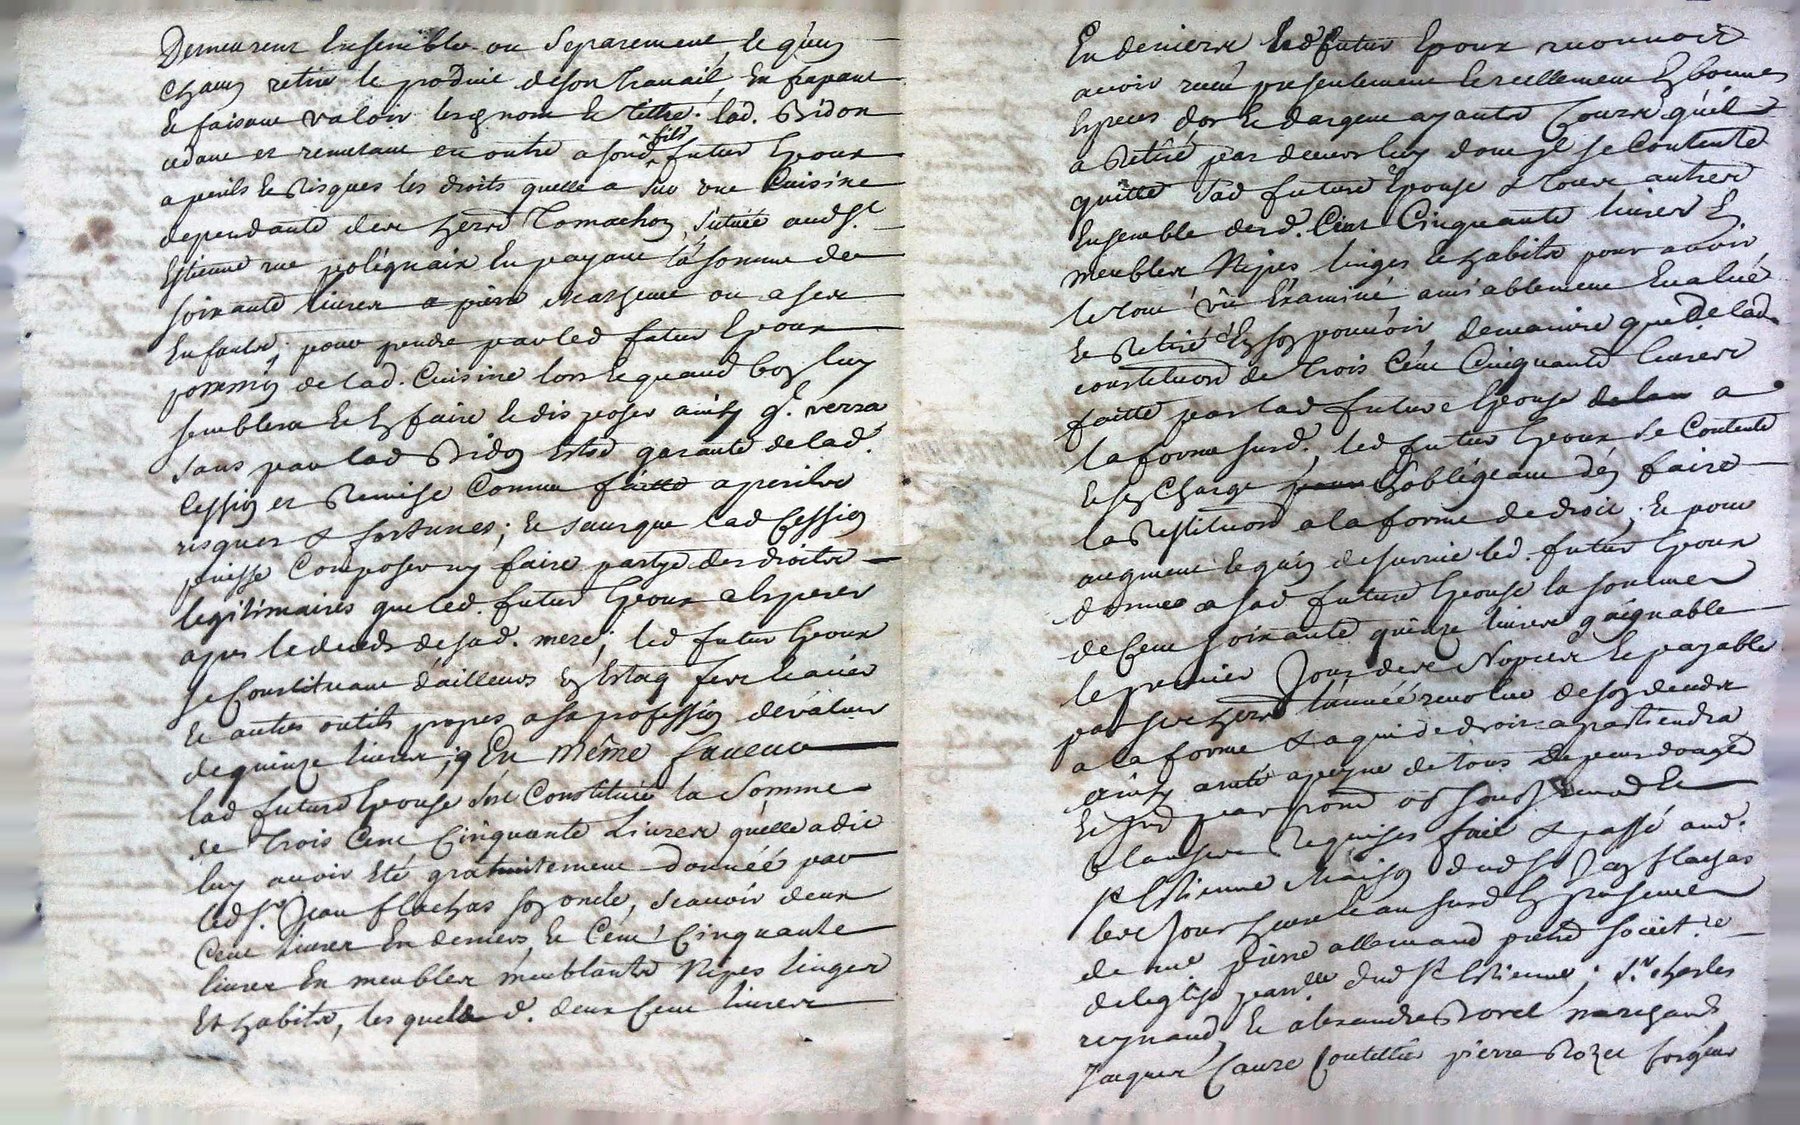 Demeurent Ensemble ou Separement, le qu'un
chaun retire le produit de son travail, En frapant
Et faisant valoir les nom Et tittre. lad. Bidon
cedant et remetant en outre a sond. fils futur Epoux
a perils Et Risques les droits quelle a sur une Cuisine
dependante des hers Tomachon, scituée aud. St.
Estienne rue polignaix En payant la somme de
soixante livres a pierre Marthene ou a ses
Enfants; pour prendre par led futur Epoux
lad. Cuisine lors Et quand bon luy
semblera Et En faire Et disposer ainsy qt. verra
sans par lad Bidon Estre garante de lad.
Cession et Remise Comme faitte a perils
risques & fortunes; Et sans que lad Cession
puisse Composer ny faire partye des droits
legitimaires que led. futur Epoux a Esperer
apres le deceds de sad. mere; led futur Epoux
se Constituant d'ailleurs En Estaq fers leviér
Et autres outils propres a sa profession de valeur
de quinze livres; En même faveur
lad future Epouse s'est Constituée la Somme
de Trois Cent Cinquante Livres qu'elle a dit
luy avoir Eté gratuitement donnée par
led Sr. Jean flachas son oncle, scavoir deux
Cent livres En deniers, Et Cent Cinquante
livres En meubles meublants Nipes linges
Et habits, les quels d. deux Cent livres
En deniers led futur Epoux reconnoit
avoir receu presentement Et reellement En bonnes
Especes dor Et dargent ayants Cours qu'il
a Retiré par devers luy dont Il se Contente
quitte sad future Epouse & tous autres
Ensemble desd. Cent Cinquante livres En
meubles Nipes linges Et habits pour avoir
le tout vû Examiné amiablement Evalué
Et Retiré En son pouvoir, demaniere que de lad.
constitution de Trois Cent Cinquante livres
faitte par lad future Epouse a
la forme susd., led futur Epoux se Contente
Et se Charge s'obligeant d'En faire
la Restitution a la forme de droit, Et pour
augment Et gain de survie led. futur Epoux
donne a sad future Epouse la somme
de Cent soixante quinze livres gaignable
le premier Jour des Nopces Et payable
par ses hers l'année revolue de son deceds
a la forme & a qui de droit apartiendra
ainsy areté a peyne de tous depens domages
Et
Clauses Requises fait & passé aud.
St Estienne Maison dud Sr Jean flachas
les Jour heure Et an susd En presence
de me pierre allemand pretre societ.re
de leglise parr.lle dud St Estienne; Sr. charles
reynaud, Et alexandre Borel marchands,
Jacques Caure Coutellier pierre Rozet forgeur